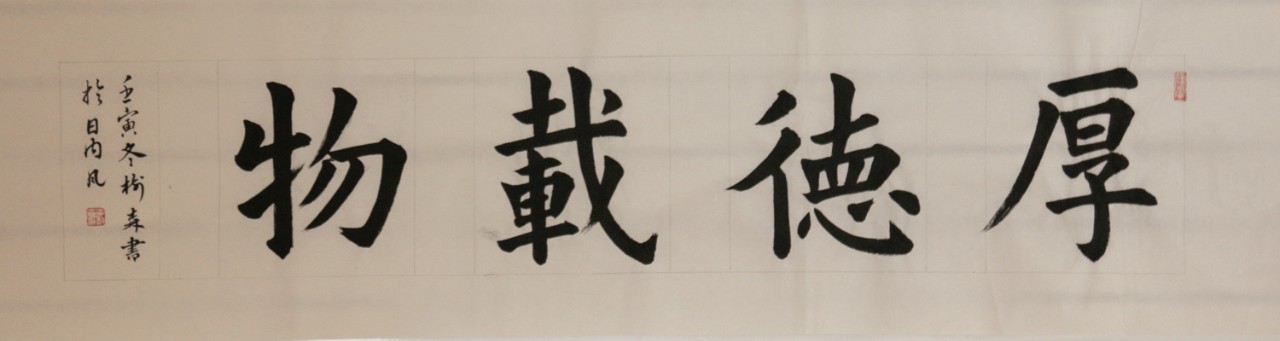 厚德載物
壬寅冬樹森書
於日內瓦